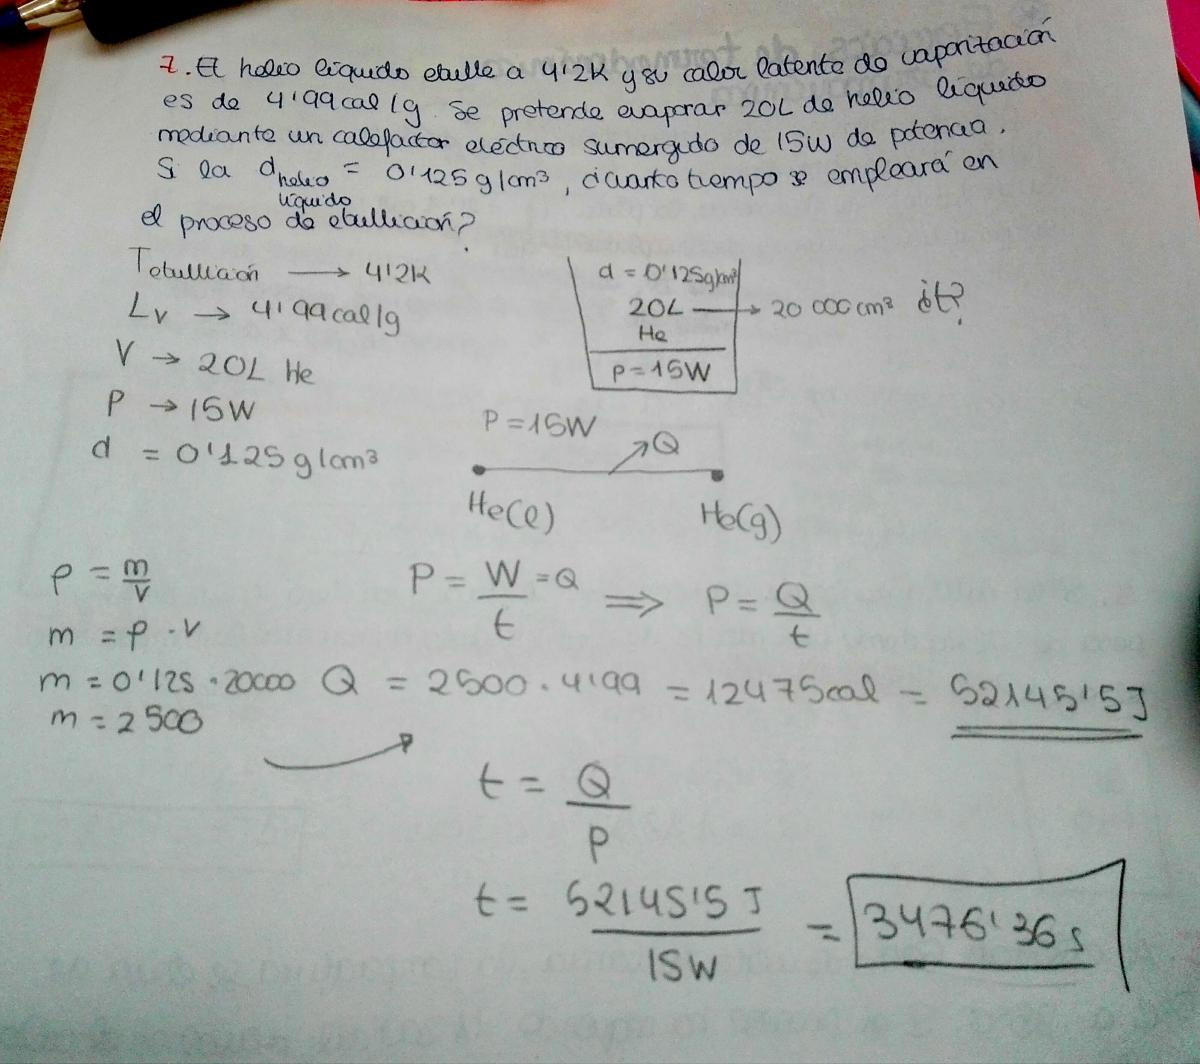 7. El helio líquido ebulle a 4'2K y su calor latente de vaporización
es de 4'99cal/g. Se pretende evaporar 20L de helio líquido
mediante un calefactor eléctrico sumergido de 15W de potencia.
Si la d helio líquido = 0'125g/cm³, ¿cuanto tiempo se empleará en
el proceso de ebullición?
Tebullición → 4'2K
Lv → 4'99cal/g
V → 20L He
P → 15W
d = 0'125g/cm³
d = 0'125g/cm³
20L → 20 000cm³ ¿t?
He
P=15W
P=15W
Q
He(l)
He(g)
ρ = m/v
m = ρ·v
m = 0'125·20000
m = 2500
P = W/t =Q ⇒ P = Q/t
Q = 2500·4'99 = 12475cal = 52145'5J
t = Q/P
t = 52145'5J/15W = 3476'36s